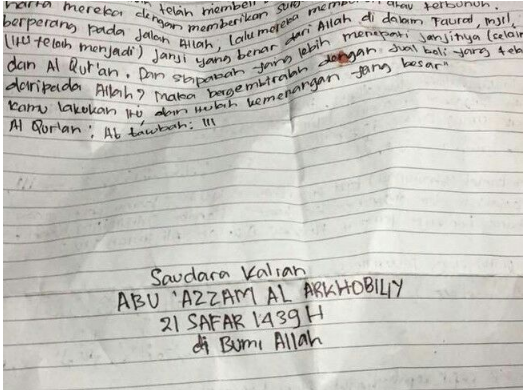 harta mereka dengan memberikan
berperang pada jalan Allah, lalu mereka atau terbunuh.
(itu telah menjadi) janji yang benar dari Allah di dalam Taurat, Injil,
dan Al Qur'an. Dan siapakah yang lebih menepati janjinya (selain
daripada Allah? Maka bergembiralah dengan jual beli yang
kamu lakukan itu dan itulah kemenangan yang besar"
Al Qur'an : At tawbah : 111
Saudara Kalian
ABU 'AZZAM AL ARKHOBILIY
21 SAFAR 1439 H
di Bumi Allah